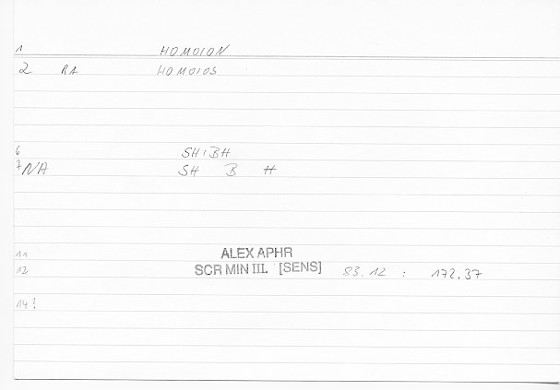 1 HOMOION
2 RA HOMOIOS
6 SHIBH
7 NA SH B H
11 ALEX APHR
12 SCR MIN III. [SENS] 83.12 : 172.37
14!